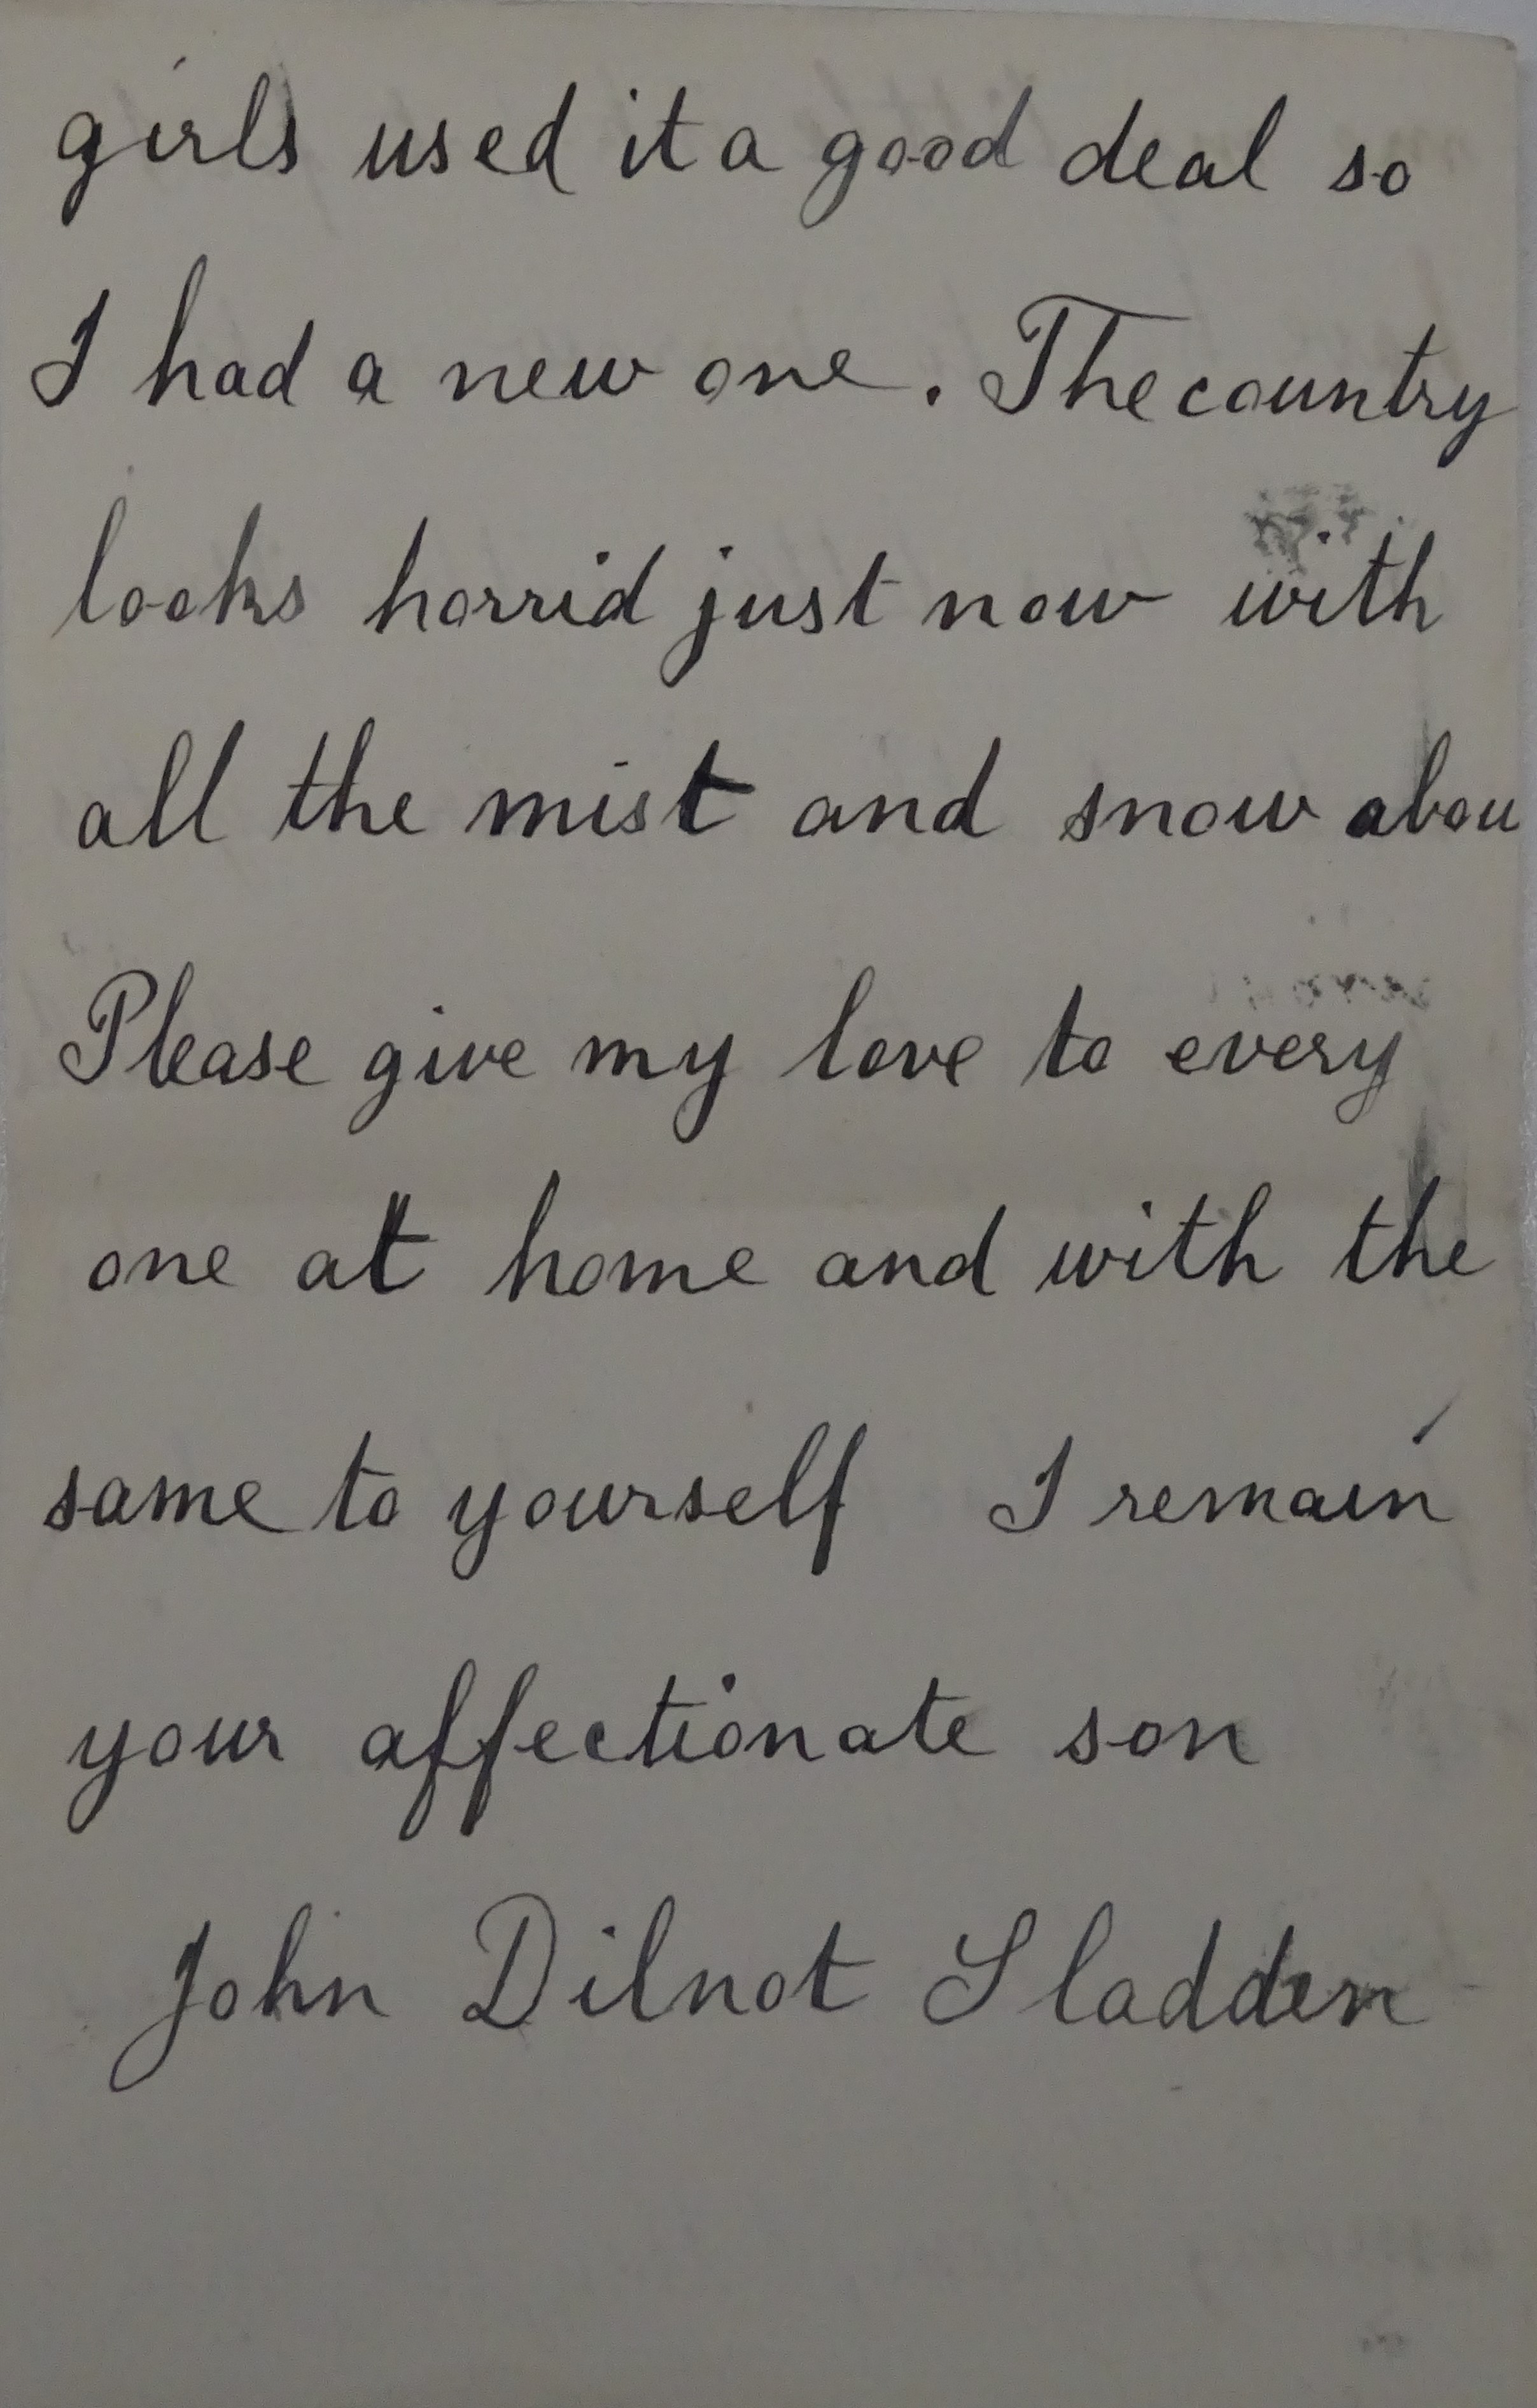 girls used it a good deal so
I had a new one. The country
looks horrid just now with
all the mist and snow abou
Please give my love to every
one at home and with the
same to yourself I remain
your affectionate son
John Dilnot Sladden